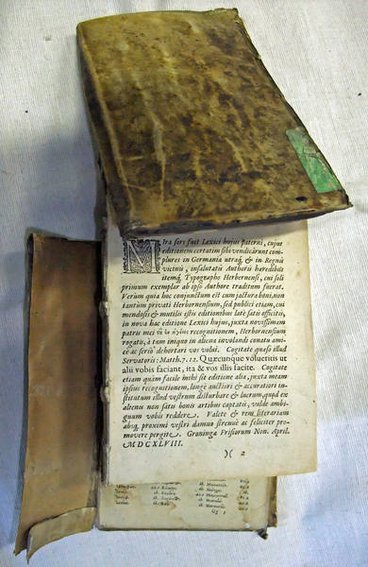 Mira sors fuit Lexici hujus paterni, cujus
editionem certatim sibi vendicârunt com-
plures in Germania utraq; & in Regnis
vicinis, insalutatis Authoris heredibus
itemq; Typographo Herbornensi, cui soli
primum exemplar ab ipso Authore traditum fuerat.
Verùm quia hoc conjunctum est cum jactura boni, non
tantùm privati Herbornensium, sed publici etiam, cui
mendosis & mutilis istis editionibus latè satis officitis,
in nova hac editione Lexici hujus, juxta novissimam
patris mei recognitionem, Herbornensium
rogatu, à tam iniquo in aliena involandi conatu ami-
cè ac seriò dehortari vos volui. Cogitate quæso illud
Servatoris: Matth. 7. 12. Quæcunque volueritis ut
alii vobis faciant, ita & vos illis facite. Cogitate
etiam quàm facile mihi sit editione alia, juxta meam
ipsius recognitionem, longè auctiori & accuratiori in-
stitutum illud vestrum disturbare & lucrum, quod ex
alienis non satis bonis artibus captatis, valde ambi-
guum vobis reddere. Valete & rem literariam
absq; proximi vestri damno strenuè ac feliciter pro-
movere pergite. Groninga Frisiorum Non. April.
MDCXLVIII.
)( 2